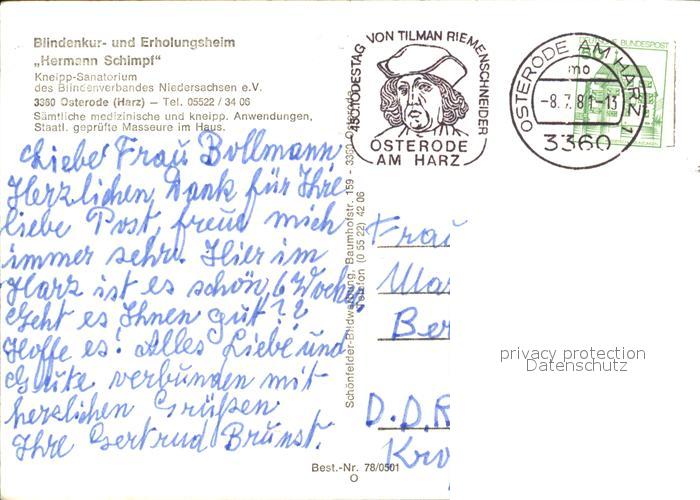 Blindenkur- und Erholungsheim
„Hermann Schimpf“
Kneipp-Sanatorium
des Blindenverbandes Niedersachsen e.V.
3360 Osterode (Harz) — Tel. 05522 / 34 06
Sämtliche medizinische und kneipp. Anwendungen,
Staatl. geprüfte Masseure im Haus.
Liebe Frau Bollmann
Herzlichen Dank für Ihre
liebe Post, freue mich
immer sehr. Hier im
Harz ist es schön, 6 Woch.
Geht es Ihnen gut??
Hoffe es! Alles Liebe und
Gute verbunden mit
herzlichen Grüßen
Ihre Gertrud Brunst.
Schönfelder-Bildwerbung, Baumhofstr. 159 - 3360 Osterode
Telefon (0 55 22) 42 06
Best.-Nr. 78/0501
450. TODESTAG VON TILMAN RIEMENSCHNEIDER
OSTERODE
AM HARZ
OSTERODE AM HARZ 1
mo
-8.7.81-13
3360
DEUTSCHE BUNDESPOST
Frau
Ber
D.D.R
privacy protection
Datenschutz